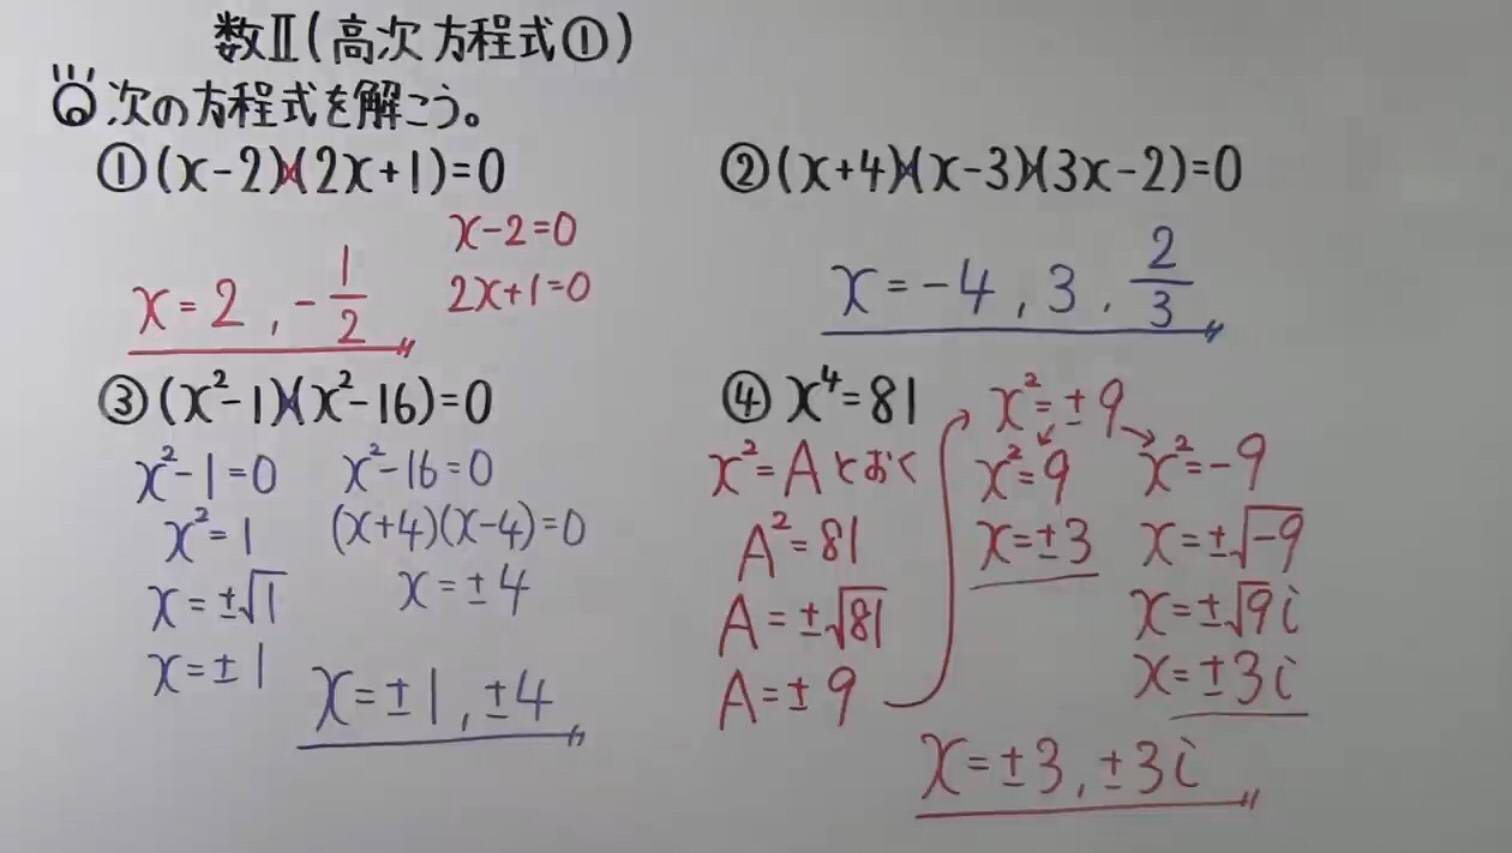 数Ⅱ(高次方程式①)
次の方程式を解こう。
①(x-2)(2x+1)=0
x-2=0
2x+1=0
x=2,-1/2
②(x+4)(x-3)(3x-2)=0
x=-4,3,2/3
③(x²-1)(x²-16)=0
x²-1=0
x²=1
x=±√1
x=±1
x²-16=0
(x+4)(x-4)=0
x=±4
x=±1,±4
④x⁴=81
x²=Aとおく
A²=81
A=±√81
A=±9
x²=±9
x²=9
x=±3
x²=-9
x=±√-9
x=±√9i
x=±3i
x=±3,±3i